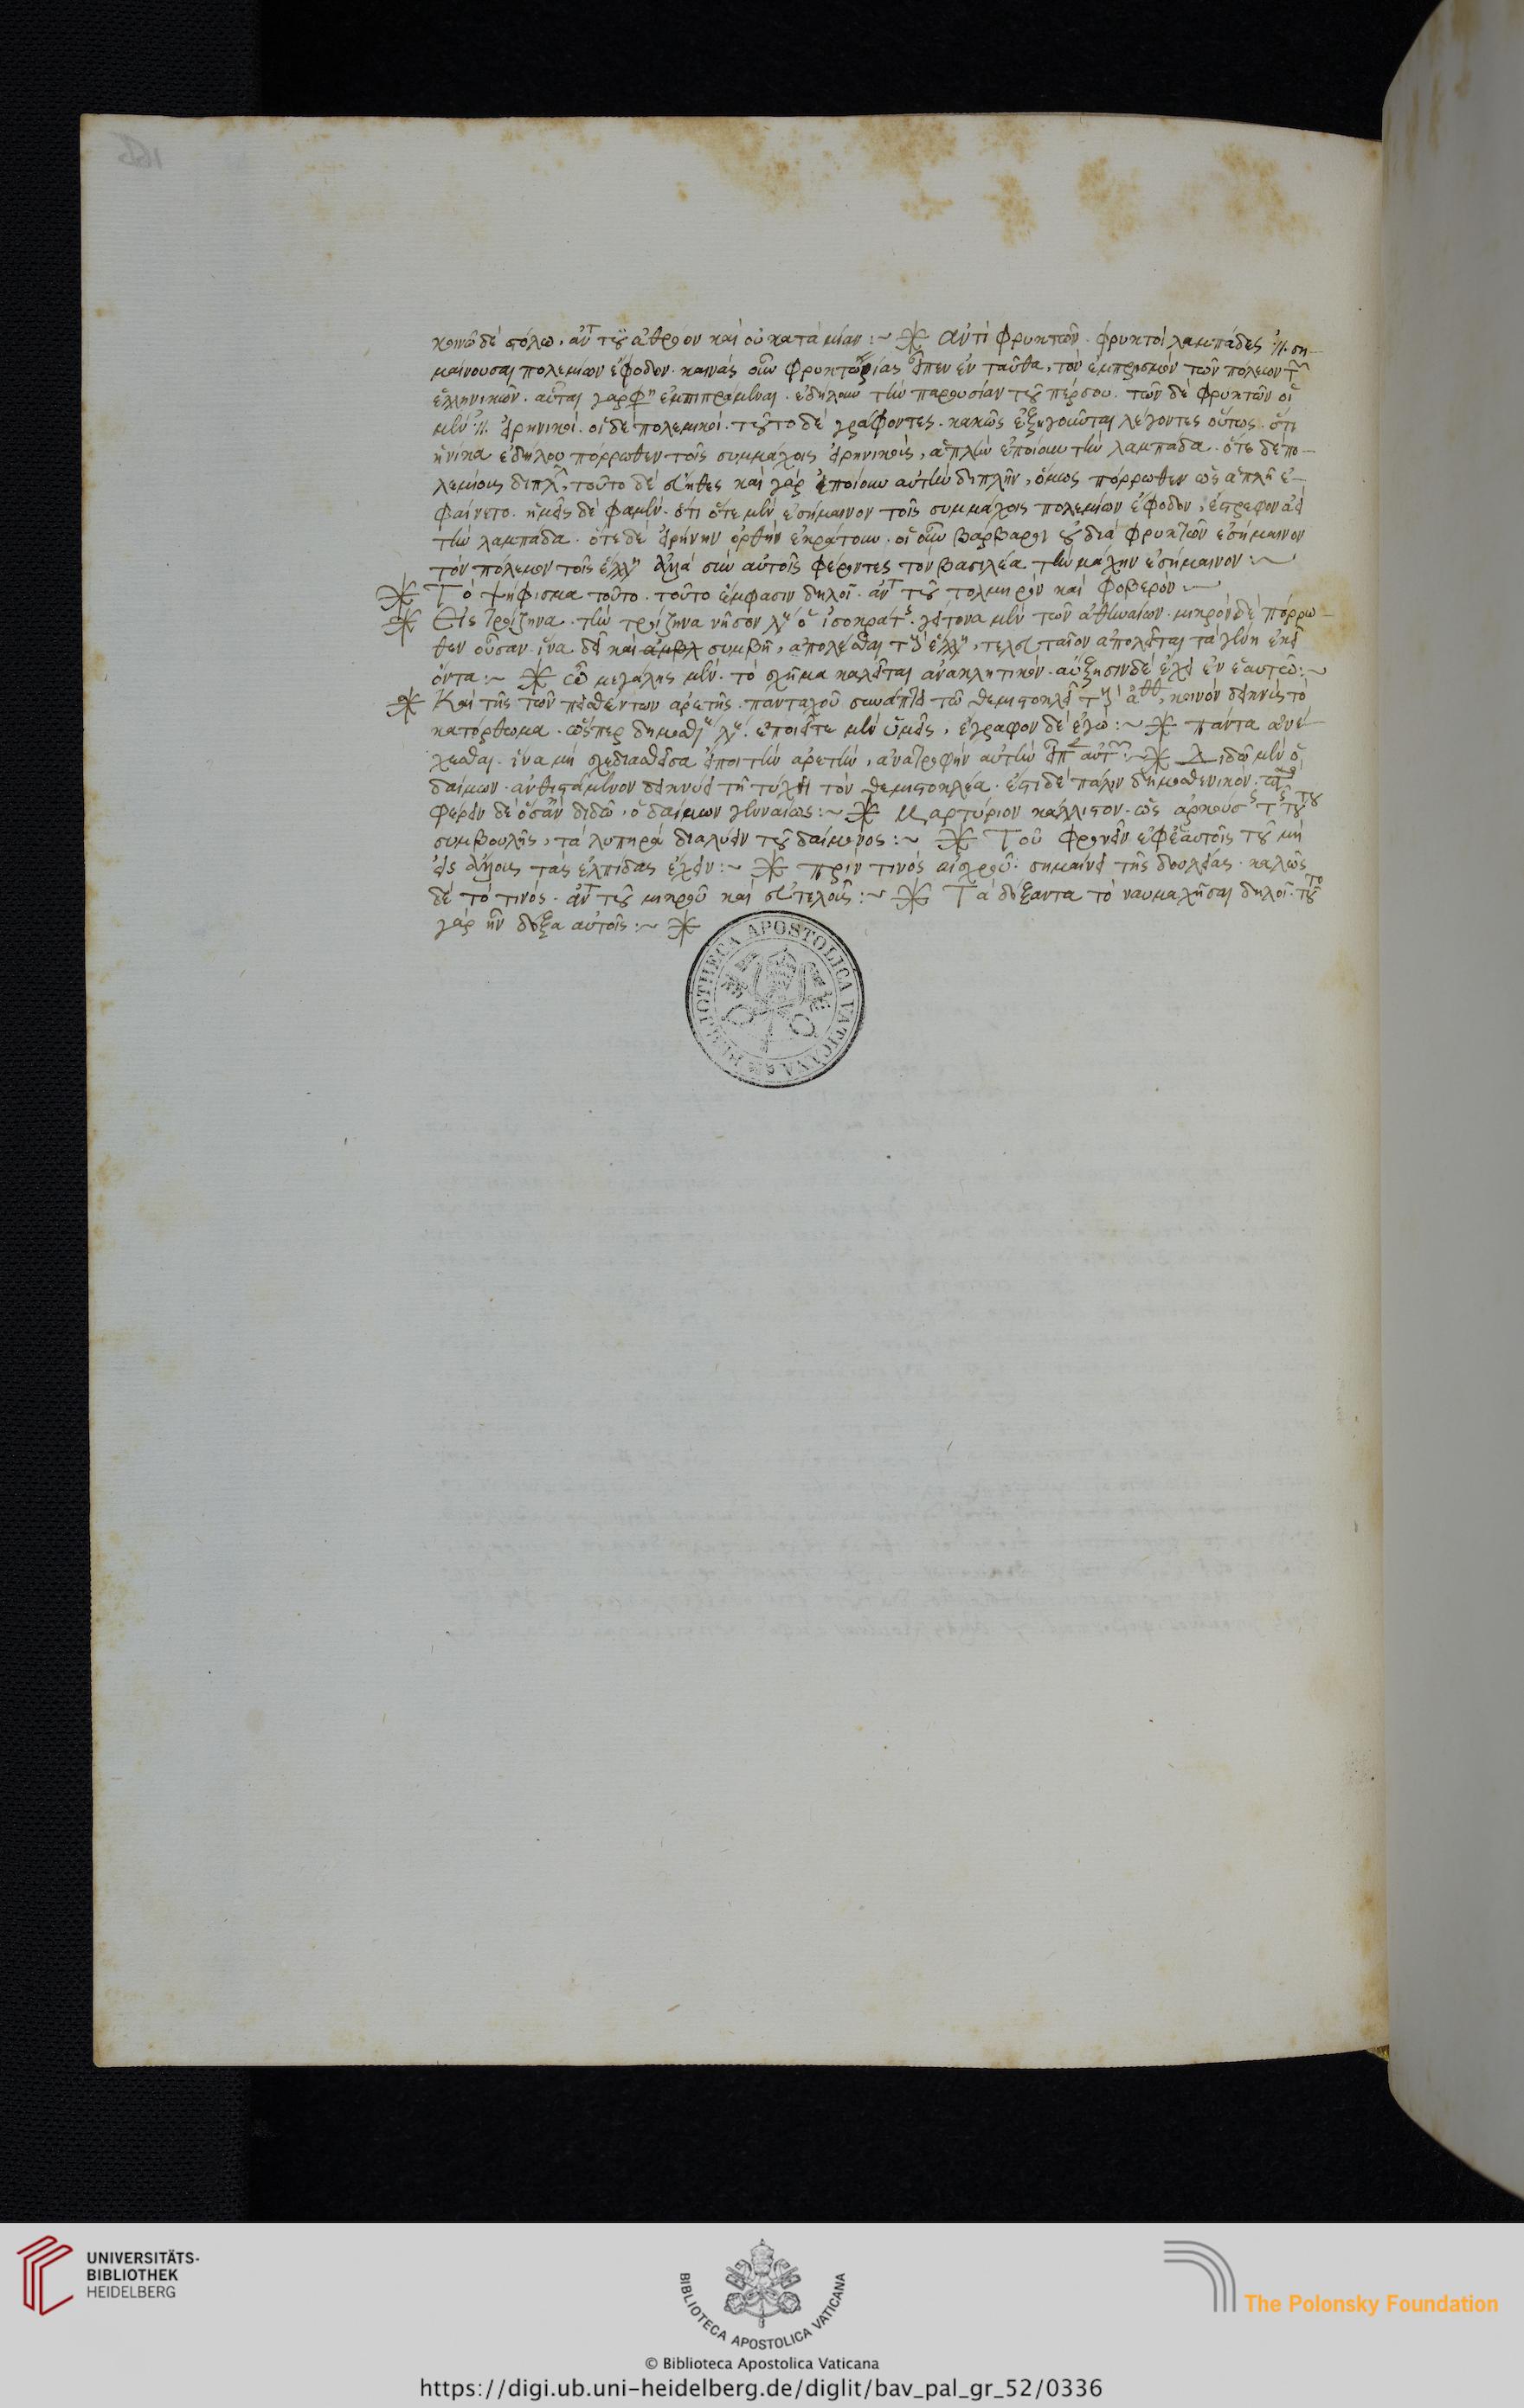 κοινῷ δὲ στόλῳ. ἀντ τοῦ ἀθρόον καὶ οὐ κατὰ μίαν :~ ※ ἀντὶ φρυκτῶν. φρυκτοὶ λαμπάδες
μαίνουσαι πολεμίων ἔφοδον. καινὰς οὖν φρυκτωρίας εἶπεν ἐνταῦθα, τὸν ἐμπρησμὸν τῶν πόλεων
ἑλληνικῶν. αὗται γάρ φη ἐμπιπράμεναι. ἐδήλουν τὴν παρουσίαν τοῦ πέρσου. τῶν δὲ φρυκτῶν οἱ
μὲν εἰρηνικοί. οἱ δὲ πολεμικοί. τοῦτο δὲ γράφοντες. κακῶς ἐξηγοῦνται λέγοντες οὕτως. ὅτι
ἡνίκα ἐδήλου πόρρωθεν τοῖς συμμάχοις εἰρηνικοῖς, ἁπλῆν ἐποίουν τὴν λαμπάδα. ὅτε δὲ πο-
λεμίους διπλ, τοῦτο δὲ εὔηθες καὶ γὰρ εἰ ἐποίουν αὐτὴν διπλῆν, ὅμως πόρρωθεν ὡς ἁπλῆ ἐ-
φαίνετο. ἡμεῖς δὲ φαμέν. ὅτι ὅτε μὲν ἐσήμαινον τοῖς συμμάχοις πολεμίων ἔφοδον, ἔστρεφον ἀεὶ
τὴν λαμπάδα. ὅτε δὲ εἰρήνην ὀρθὴν ἐκράτουν. οἱ οὖν βάρβαροι οὐ διὰ φρυκτῶν ἐσήμαινον
τὸν πόλεμον τοῖς ἕλλη ἀλλὰ σὺν αὐτοῖς φέροντες τὸν βασιλέα τὴν μάχην ἐσήμαινον :~
※ Τὸ ψήφισμα τοῦτο. τοῦτο ἔμφασιν δηλοῖ. ἀντ τοῦ τολμηρὸν καὶ φοβερόν :~
※ Εἰς τροίζηνα. τὴν τροίζηνα νῆσον λέ ὁ ἰσοκράτ. γείτονα μὲν τῶν ἀθηναίων. μικρὸν δὲ πόρρω-
θεν οὖσαν. ἵνα δὲ καὶ συμβῇ, ἀπολέσθαι τ ἕλλη, τελευταῖον ἀπολεῖται τὰ γένη ἐκεῖ
ὄντα :~ ※ ὦ μεγάλης μέν. τὸ σχῆμα καλεῖται ἀνακλητικόν. αὔξησιν δὲ ἔχει ἐν ἑαυτῷ :~
※ Καὶ τῆς τῶν πεισθέντων ἀρετῆς. πανταχοῦ συνάπτει τῷ θεμιστοκλεῖ τ ἀθ, κοινὸν δεικνὺς τὸ
κατόρθωμα. ὥσπερ δημοσθ λέ. ἐποιεῖτε μὲν ὑμεῖς, ἔγραφον δὲ ἐγώ :~ ※ πάντα ἀνέ-
χεσθαι. ἵνα μὴ σχεδιασθεῖσα εἴποι τὴν ἀρετήν, ἀνατροφὴν αὐτὴν εἶπ αὐτ :~ ※ Διδῷ μὲν ὁ
δαίμων. ἀνθιστάμενον δεικνύει τῇ τύχῃ τὸν θεμιστοκλέα. ἔστι δὲ πάλιν δημοσθενικόν.
φέρειν δὲ ὅσ' ἂν διδῷ, ὁ δαίμων γενναίως :~ ※ Μαρτύριον κάλλιστον. ὡς ἀρκούσ τ τοῦ
συμβουλῆς, τὰ λυπηρὰ διαλύειν τοῦ δαίμονος :~ ※ Τοῦ φρονεῖν ἐφ' ἑαυτοῖς τοῦ μὴ
εἰς ἄλλους τὰς ἐλπίδας ἔχειν :~ ※ πρίν τινος αἰσχροῦ. σημαίνει τῆς δουλείας. καλῶς
δὲ τὸ τινός. ἀντ τοῦ μικροῦ καὶ εὐτελοῦς :~ ※ Τὰ δόξαντα τὸ ναυμαχῆσαι δηλοῖ. τοῦτο
γὰρ ἦν δόξα αὐτοῖς :~ ※
BIBLIOTHECA APOSTOLICA VATICANA
UNIVERSITÄTS-
BIBLIOTHEK
HEIDELBERG
BIBLIOTECA APOSTOLICA VATICANA
The Polonsky Foundation
© Biblioteca Apostolica Vaticana
https://digi.ub.uni-heidelberg.de/diglit/bav_pal_gr_52/0336